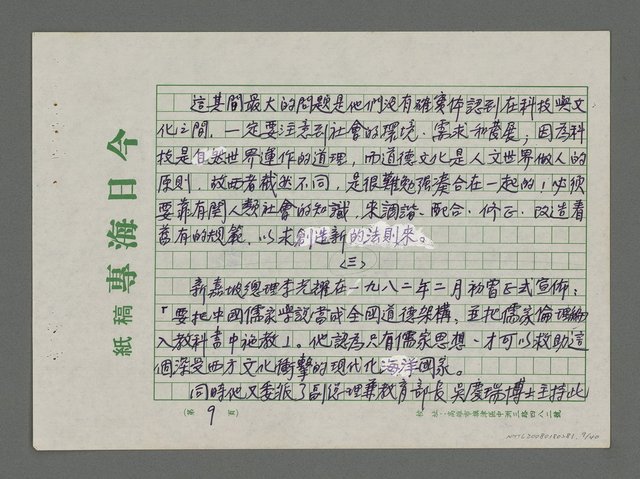 今日海專
稿紙
這其間最大的問題是他們沒有確實体認到在科技與文
化之間，一定要注意到社會的環境、需求和發展，因為科
技是自然世界運作的道理，而道德文化是人文世界做人的
原則，故两者截然不同，是很難勉強湊合在一起的！必須
要靠有關人類社會的知識，來調諧、配合、修正、改造舊
舊有的規範，以求創造新的法則來。
〈三〉
新嘉坡總理李光耀在一九八二年二月初曾正式宣佈：
「要把中國儒家學説當成全國道德架構，並把儒家倫理編
入教科書中施教」。他認為只有儒家思想，才可以救助這
個深受西方文化衝擊的現代化海洋國家。
同時他又委派了副總理兼教育部長吳慶瑞博士主持此
（第 9 頁）
校址：高雄市旗津區中洲三路四八二號
NMTL20080180281 9/40